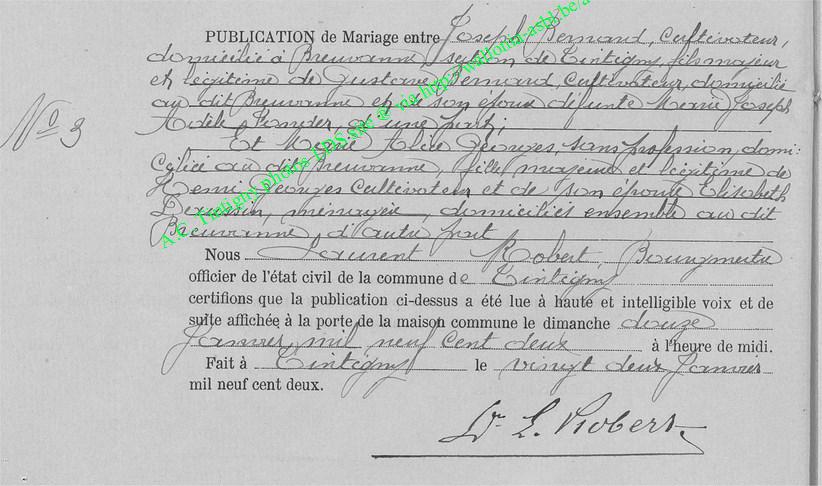 PUBLICATION de Mariage entre Joseph Bernard, Cultivateur,
domicilié à Breuvanne section de Tintigny, fils majeur
et légitime de Gustave Bernard, Cultivateur, domicilié
au dit Breuvanne et de son épouse défunte Marie Joseph
N° 3
Adèle, d'une part;
Et Marie Alice Georges, sans profession, domi-
ciliée au dit Breuvanne, fille majeure et légitime de
Henri Georges Cultivateur et de son épouse Elisabeth
ménagère, domiciliés ensemble au dit
Breuvanne, d'autre part
Nous Laurent Robert, Bourgmestre
officier de l'état civil de la commune de Tintigny
certifions que la publication ci-dessus a été lue à haute et intelligible voix et de
suite affichée à la porte de la maison commune le dimanche douze
Janvier mil neuf cent deux à l'heure de midi.
Fait à Tintigny le vingt deux Janvier
mil neuf cent deux.
Dr L. Robert
A.C. Tintigny photos LDS.site @ via http://wallonia-asbl.be/a